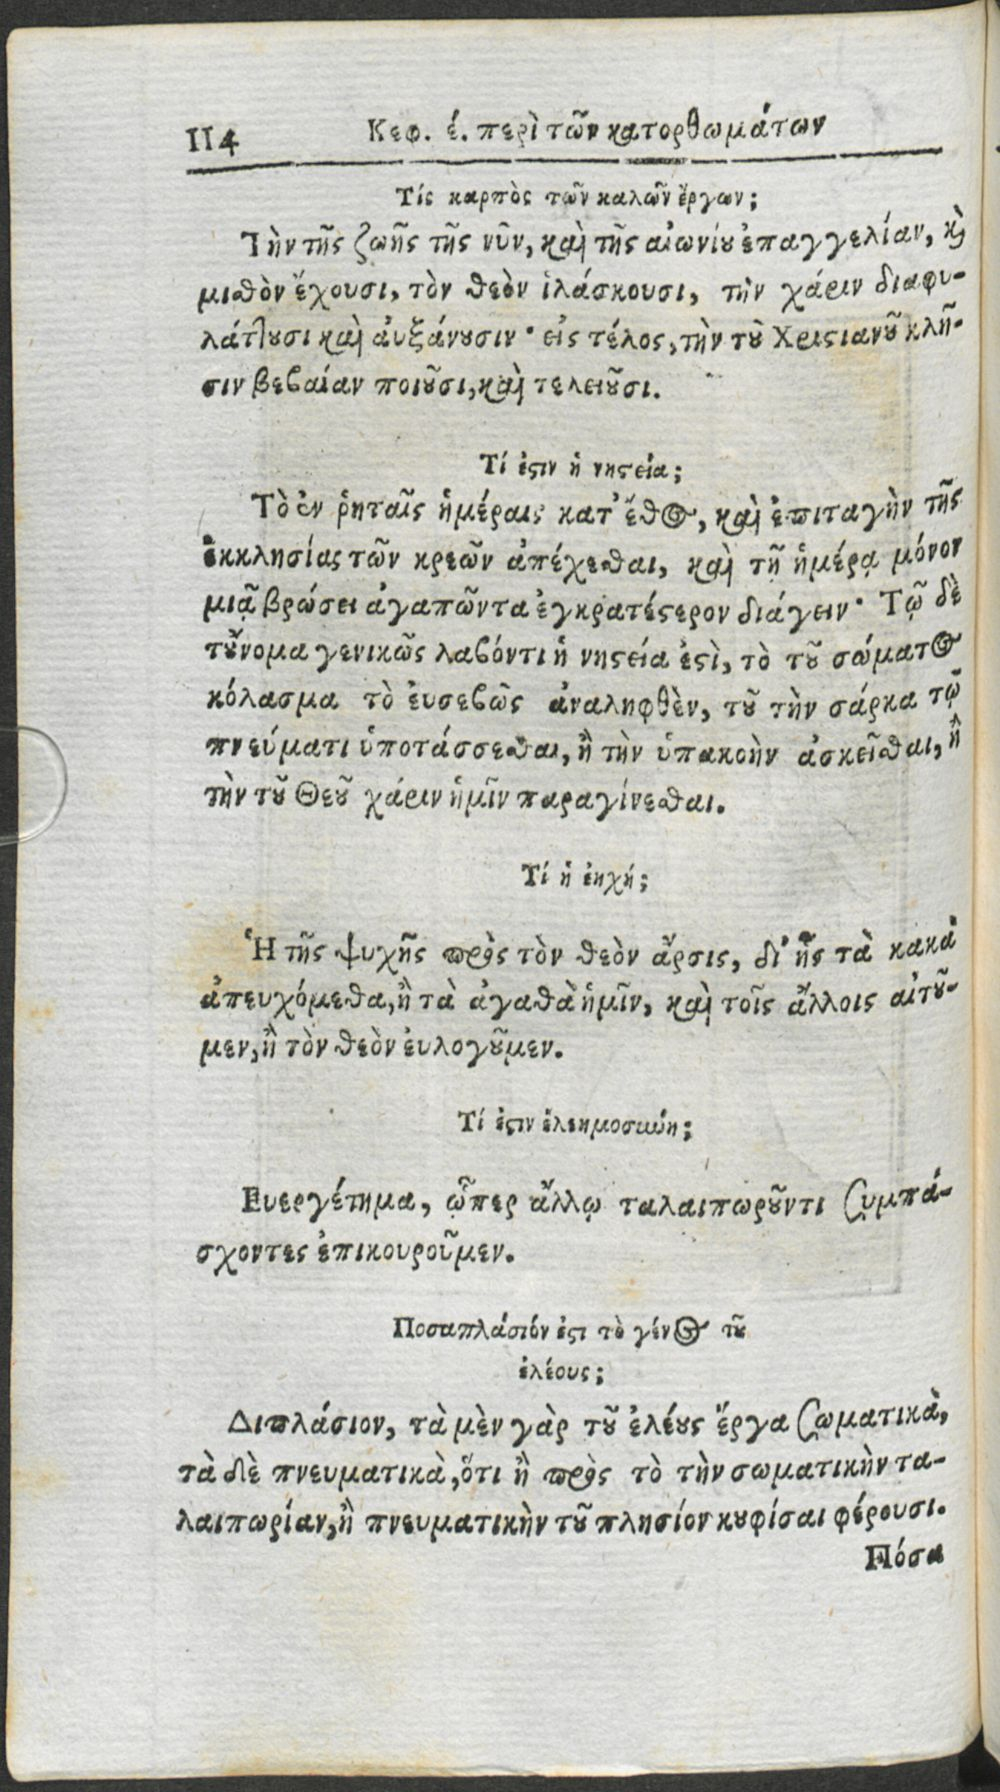 114 Κεφ. έ. περὶ τῶν κατορθωμάτων
Τίς καρπὸς τῶν καλῶν ἔργων;
Τὴν τῆς ζωῆς τῆς νῦν, καὶ τῆς αἰωνίȣ ἐπαγγελίαν, ϗ
μισθὸν ἔχουσι, τὸν θεὸν ἱλάσκουσι, τὴν χάριν διαφυ-
λάττȣσι καὶ ἀυξάνȣσιν· εἰς τέλος, τὴν τȣ͂ Χριϛιανȣ͂ κλῆ-
σιν βεβαίαν ποιȣ͂σι, καὶ τελειȣ͂σι.
Τί ἐϛιν ἡ νηϛεία;
Τὸ ἐν ῥηταῖς ἡμέραις κατ' ἔθος, καὶ ἐπιταγὴν τῆς
ἐκκλησίας τῶν κρεῶν ἀπέχεσθαι, καὶ τῇ ἡμέρᾳ μόνον
μιᾷ βρώσει ἀγαπῶντα ἐγκρατέϛερον διάγειν· Τῷ δὲ
τȣ͂νομα γενικῶς λαβόντι ἡ νηϛεία ἐϛὶ, τὸ τȣ͂ σώματος
κόλασμα τὸ ἐυσεβῶς ἀναληφθὲν, τȣ͂ τὴν σάρκα τῷ
πνεύματι ὑποτάσσεσθαι, ἢ τὴν ὑπακοὴν ἀσκεῖσθαι, ἢ
τὴν τȣ͂ Θεȣ͂ χάριν ἡμῖν παραγίνεσθαι.
Τί ἡ ἐυχή;
Ἡ τῆς ψυχῆς πρὸς τὸν θεὸν ἄρσις, δι' ἧς τὰ κακὰ
ἀπευχόμεθα, ἢ τὰ ἀγαθὰ ἡμῖν, καὶ τοῖς ἄλλοις αἰτȣ͂-
μεν, ἢ τὸν θεὸν ἐυλογȣ͂μεν.
Τί ἐϛιν ἐλεημοσύνη;
Ευεργέτημα, ᾧπερ ἄλλῳ ταλαιπωρȣ͂ντι συμπά-
σχοντες ἐπικουροῦμεν.
Ποσαπλάσιόν ἐϛι τὸ γένος τȣ͂
ἐλέους;
Διπλάσιον, τὰ μὲν γὰρ τȣ͂ ἐλέȣς ἔργα σωματικὰ,
τὰ δὲ πνευματικὰ, ὅτι ἢ πρὸς τὸ τὴν σωματικὴν τα-
λαιπωρίαν, ἢ πνευματικὴν τȣ͂ πλησίον κȣφίσαι φέρουσι.
Πόσα